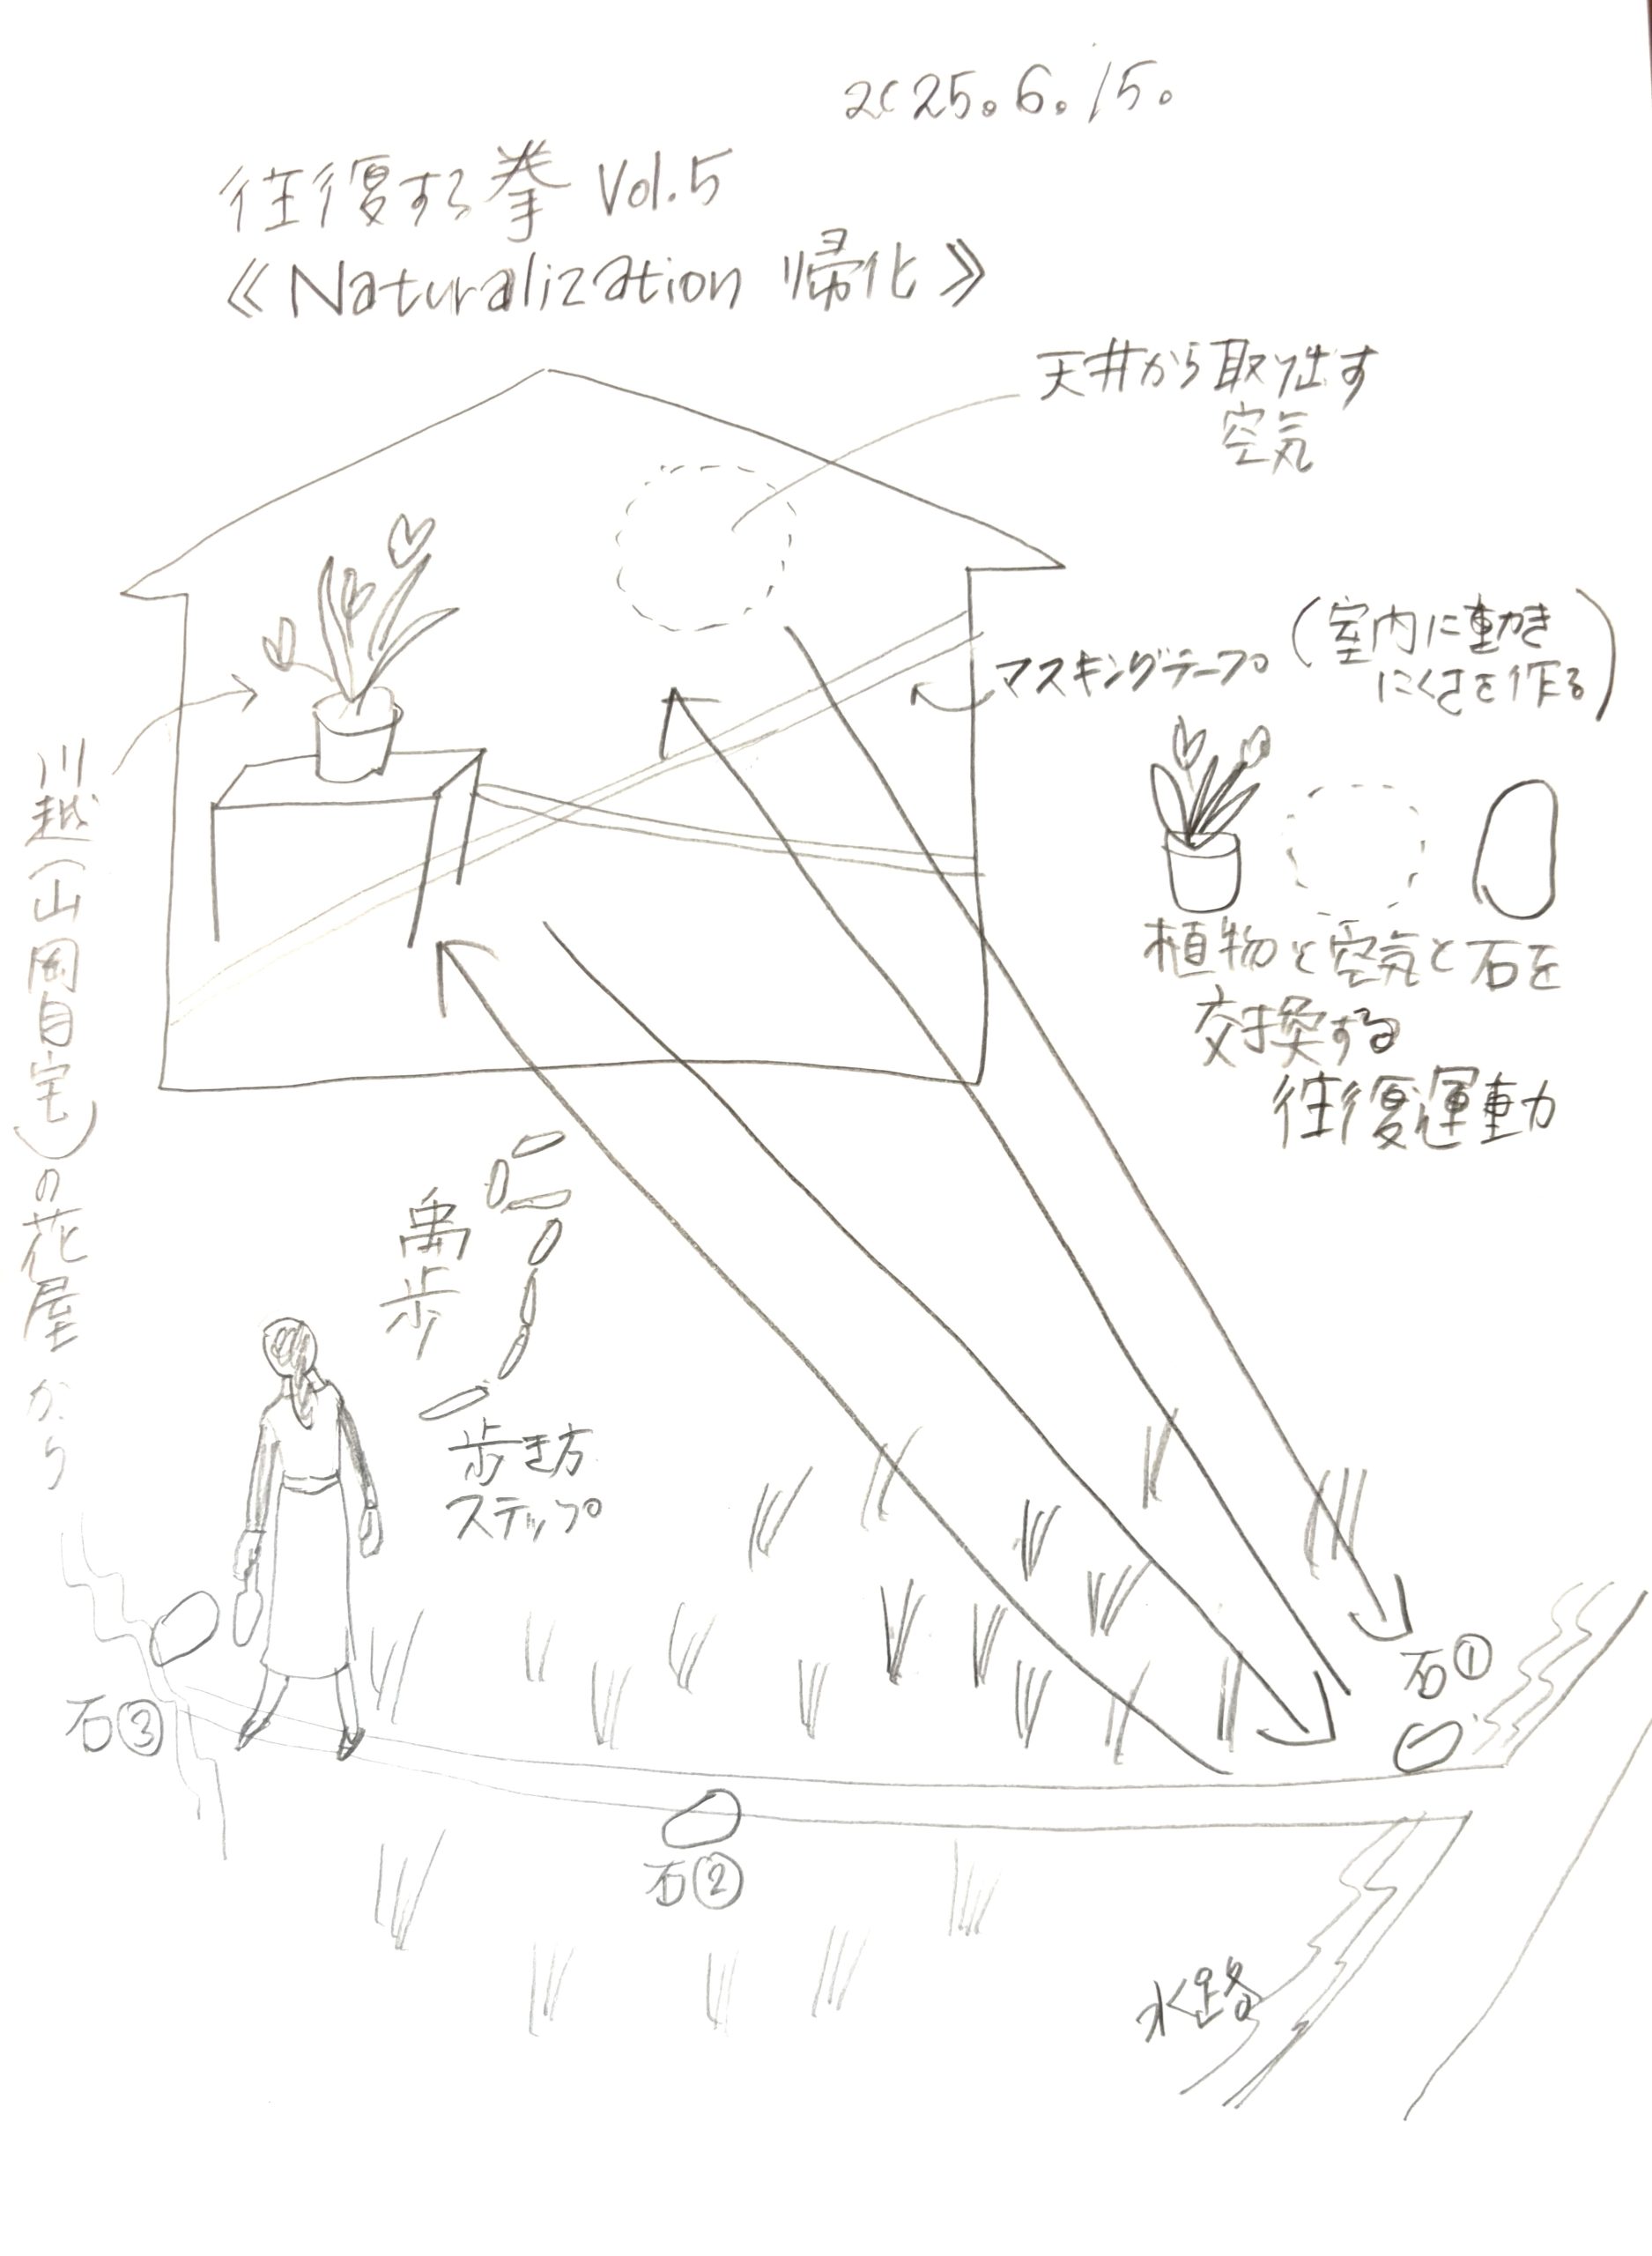 2025.6.15.
往復する拳 Vol.5
《Naturalization 帰化》
天井から取り出す
空気
マスキングテープ
(室内に動き
にくさを作る)
植物と空気と石を
交換する
往復運動
川越(山岡自宅)の花屋から
禹歩
歩き方
ステップ
石①
石②
石③
水路